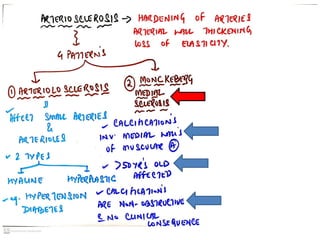 ARTERIOSCLEROSIS → HARDENING OF ARTERIES
ARTERIAL WALL THICKENING
LOSS OF ELASTICITY.
4 PATTERN'S
① ARTERIOLOSCLEROSIS
② MONCKEBERG
MEDIAL
SCLEROSIS
✓ AFFECT SMALL ARTERIES
&
ARTERIOLES
✓ 2 TYPES
HYALINE HYPERPLASTIC
✓ eg. HYPERTENSION
DIABETES
✓ CALCIFICATION'S
INV. MEDIAL WALL'S
OF MUSCULAR Ⓐ
✓ >50YR'S OLD
AFFECTED
✓ CALCIFICATION'S
ARE NON-OBSTRUCTIVE
& NO CLINICAL
CONSEQUENCE